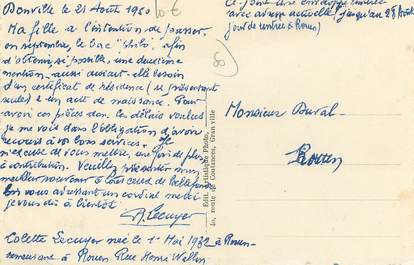 Donville le 21 Août 1950
Ma fille a l'intention de passer,
en septembre, le Bac "philo", afin
d'obtenir, si possible, une deuxième
mention, aussi aurait-elle besoin
d'un certificat de résidence (se présentant
seule) & un acte de naissance. Pour
avoir ces pièces dans les délais voulus
je me vois dans l'obligation d'avoir
recours à vos bons services. Je
m'excuse de vous mettre, une fois de plus
à contribution. Veuillez
meilleur souvenir à tous ceux de
& en vous adressant un cordial merci
je vous dis à bientôt
A. Lecuyer
Colette Lecuyer née le 1er Mai 1932 à Rouen
demeurant à Rouen Rue Henri
Ci-joint une enveloppe timbrée
avec adresse actuelle (jusqu'au 28 Août
jour de rentrée à Rouen)
10 €
50
Monsieur Duval
Rouen
Edit. Artistique Photo,
10, route de Coutances, Granville